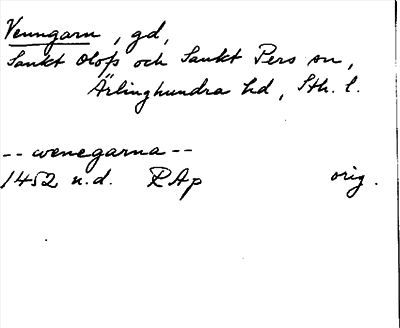 Venngarn, gd,
Sankt Olofs och Sankt Pers sn,
Ärlinghundra hd, Sth. l.
-- wenegarna --
1452 u.d. RAp orig.